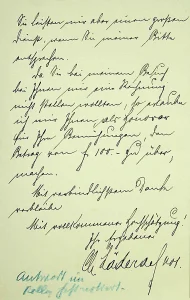 Sie leisten mir aber einen großen
Dienst, wenn Sie meiner Bitte
entsprechen.
Da Sie bei meinem Besuch
bei Ihnen mir eine Rechnung
nicht stellen wollten, so erlaube
ich mir Ihnen, als Honorar
für Ihre Bemühungen, den
Betrag von f 100.- zu über,
machen.
Mit verbindlichstem Danke
verbleibe
Mit vollkommener Hochschätzung!
Ihr ergebener